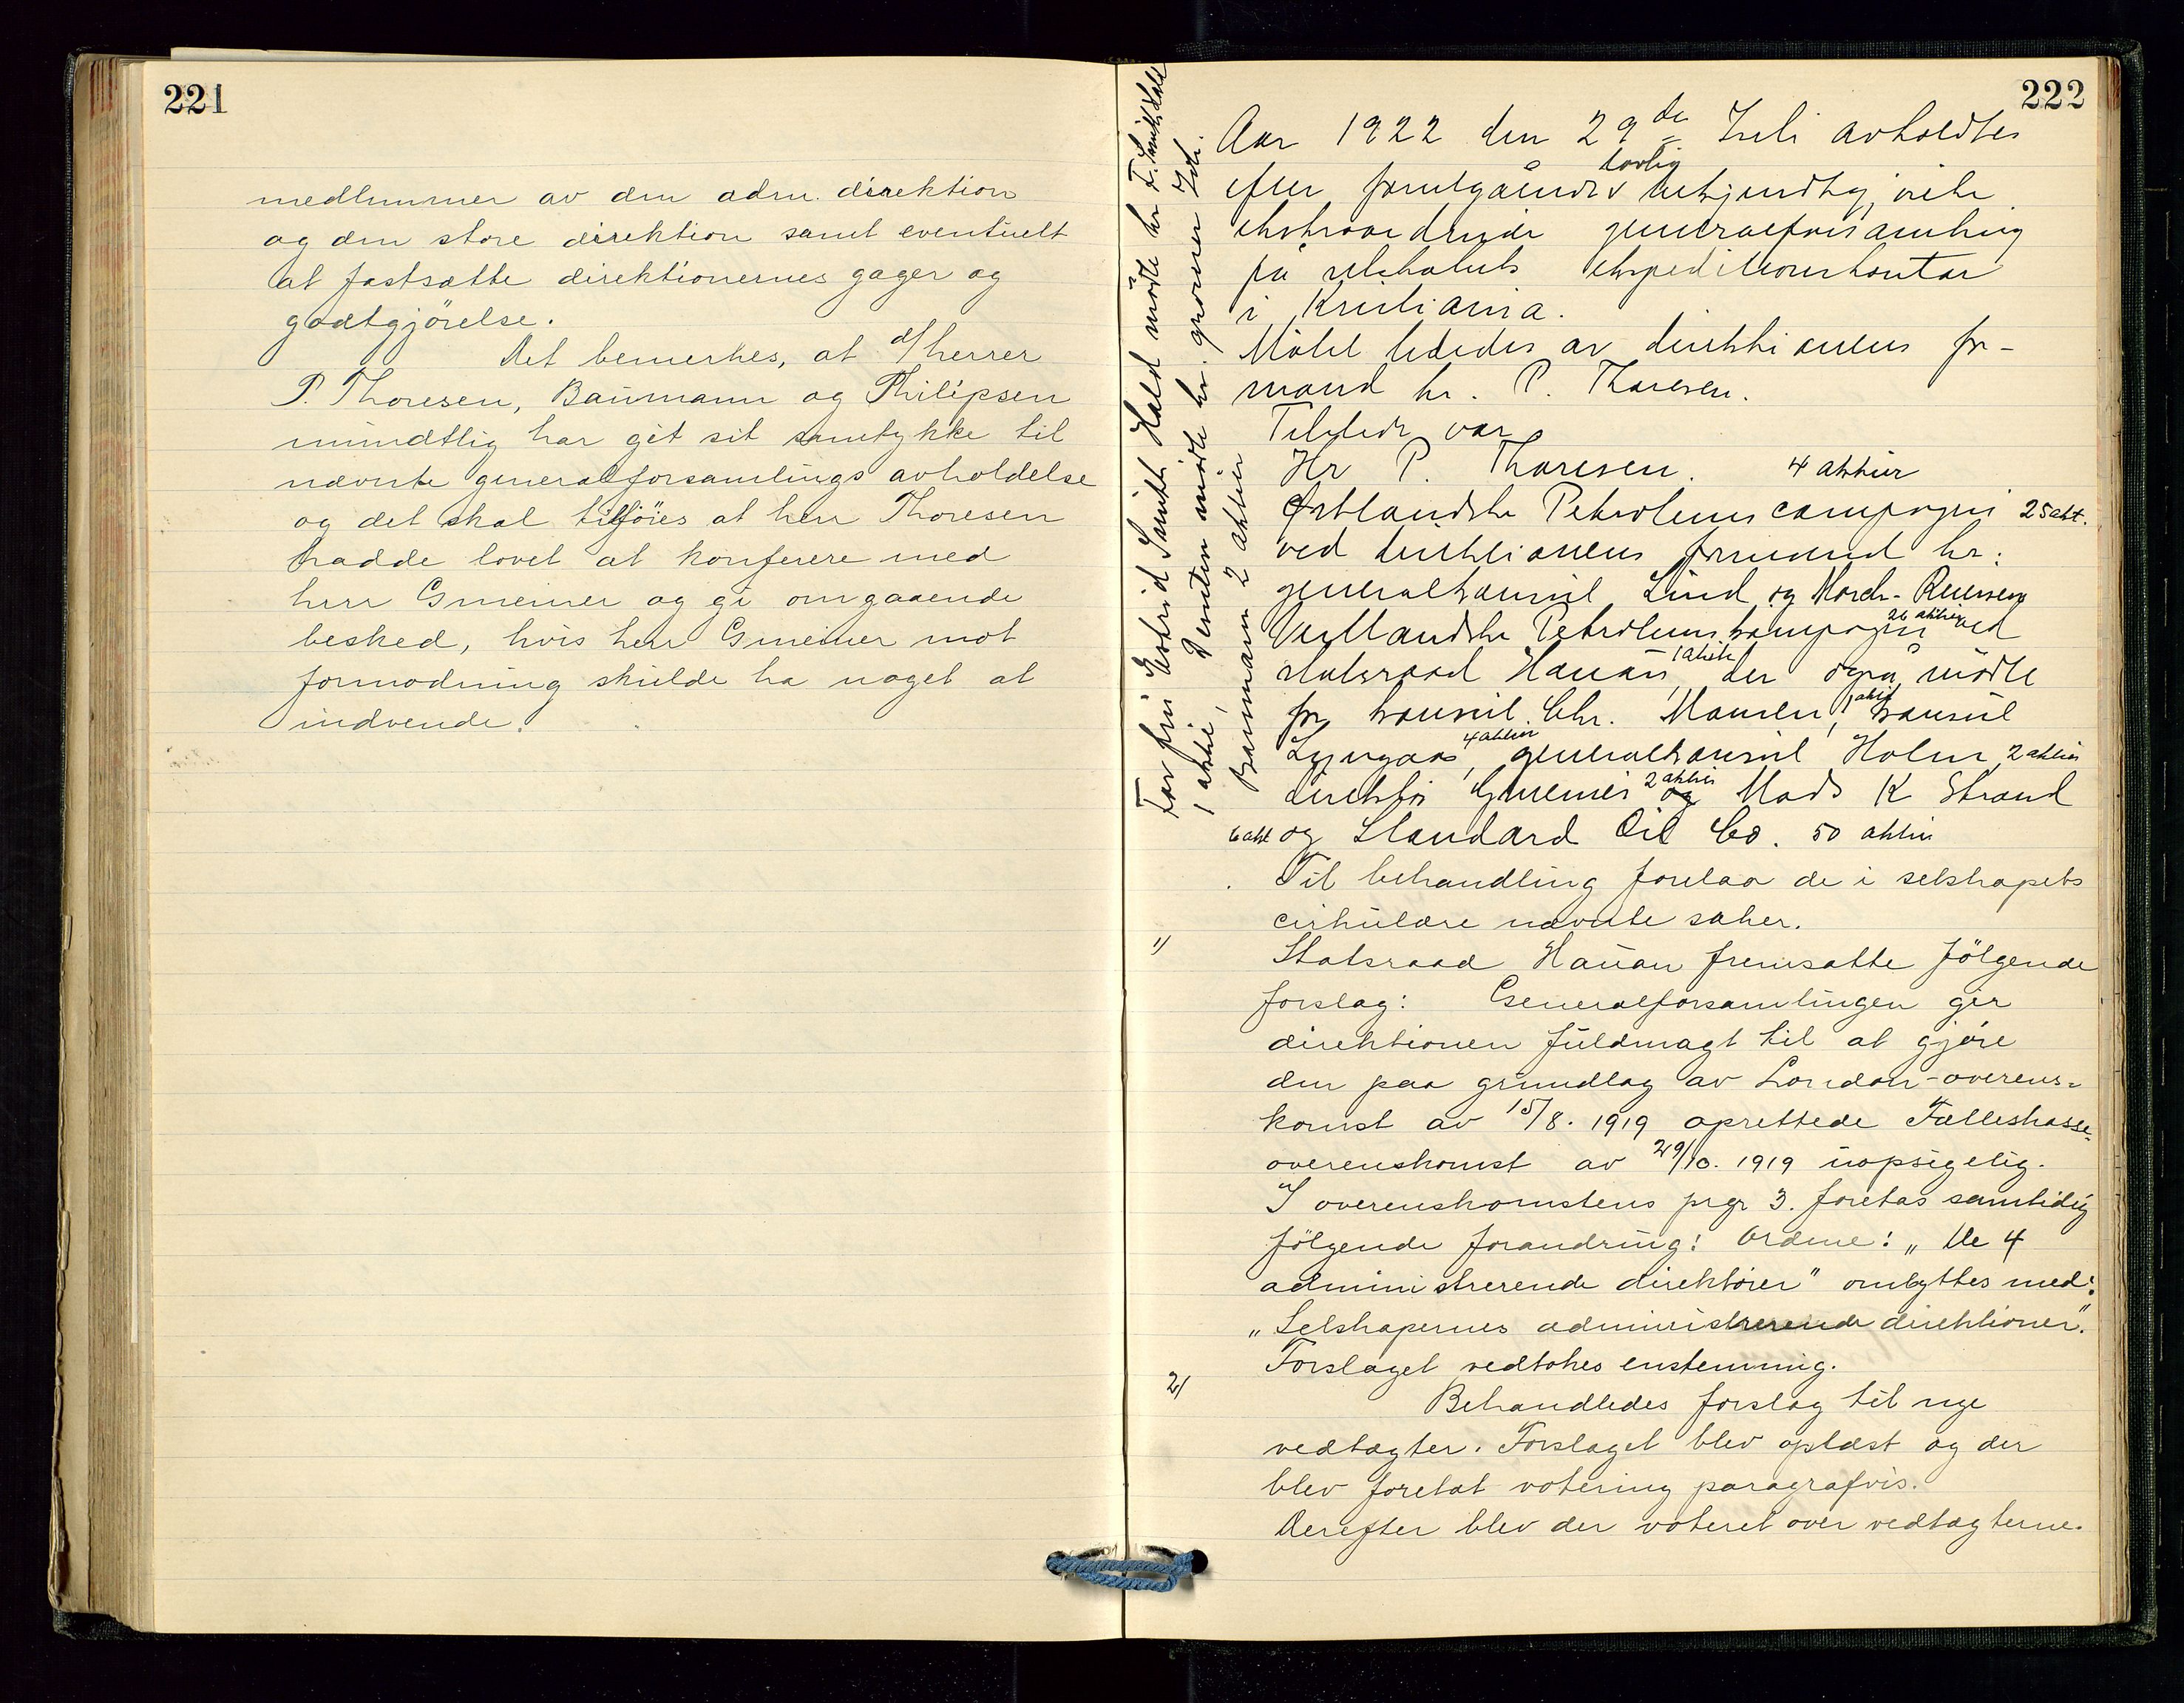 221
medlemmer av den adm. direktion
og den store direktion samt eventuelt
at fastsætte direktionernes gager og
godtgjörelse.
Det bemerkes, at d/herrer
P. Thoresen, Baumann og Philipsen
mundtlig har git sit samtykke til
nævnte generalforsamlings avholdelse
og det skal tilföies at herr Thoresen
hadde lovet at konferere med
herr Gmeiner og gi omgaaende
besked, hvis herr Gmeiner mot
formodning skulde ha noget at
indvende.
222
Aar 1922 den 29de Juli avholdtes
efter forutgående lovlig bekjendtgjörelse
ekstraordinær generalforsamling
på selskabets ekspeditionskontor
i Kristiania.
Mötet lededes av direktionens for-
mand hr. P. Thoresen.
Tilstede var
Hr P. Thoresen. 4 aktier
Østlandske Petroleumscompagni 25 akt.
ved direktionens formand hr.
generalkonsul Lund og Morch-Reiersen
Vestlandske Petroleumskompagni 26 aktier ved
statsraad Hauan, 1 aktie der også mötte
for konsul Chr. Monsen, 1 aktie konsul
Lyngaas, 4 aktier generalkonsul Holm, 2 aktier
direktör Gmeiner 2 aktier og Mads K Strand
6 akt og Standard Oil Co. 50 aktier
For fru Estrid Smith Hald mötte hr F. Smith Hald
1 aktie, mötte hr. grosserer
Baumann 2 aktier
Til behandling forelaa de i selskapets
cirkulære nævnte saker.
1/ Statsraad Hauan fremsatte følgende
forslag: Generalforsamlingen gir
direktionen fuldmagt til at gjøre
den paa grundlag av London-overens-
komst av 15/8. 1919 oprettede Fælleskasse-
overenskomst av 29/10. 1919 uopsigelig.
I overenskomstens prgr 3. foretas samtidig
følgende forandring: Ordene: „De 4
administrerende direktører" ombyttes med:
„Selskapernes administrerende direktioner".
Forslaget vedtokes enstemmig.
2/ Behandledes forslag til nye
vedtægter. Forslaget blev oplæst og der
blev foretat votering paragrafvis.
Derefter blev der voteret over vedtægterne.